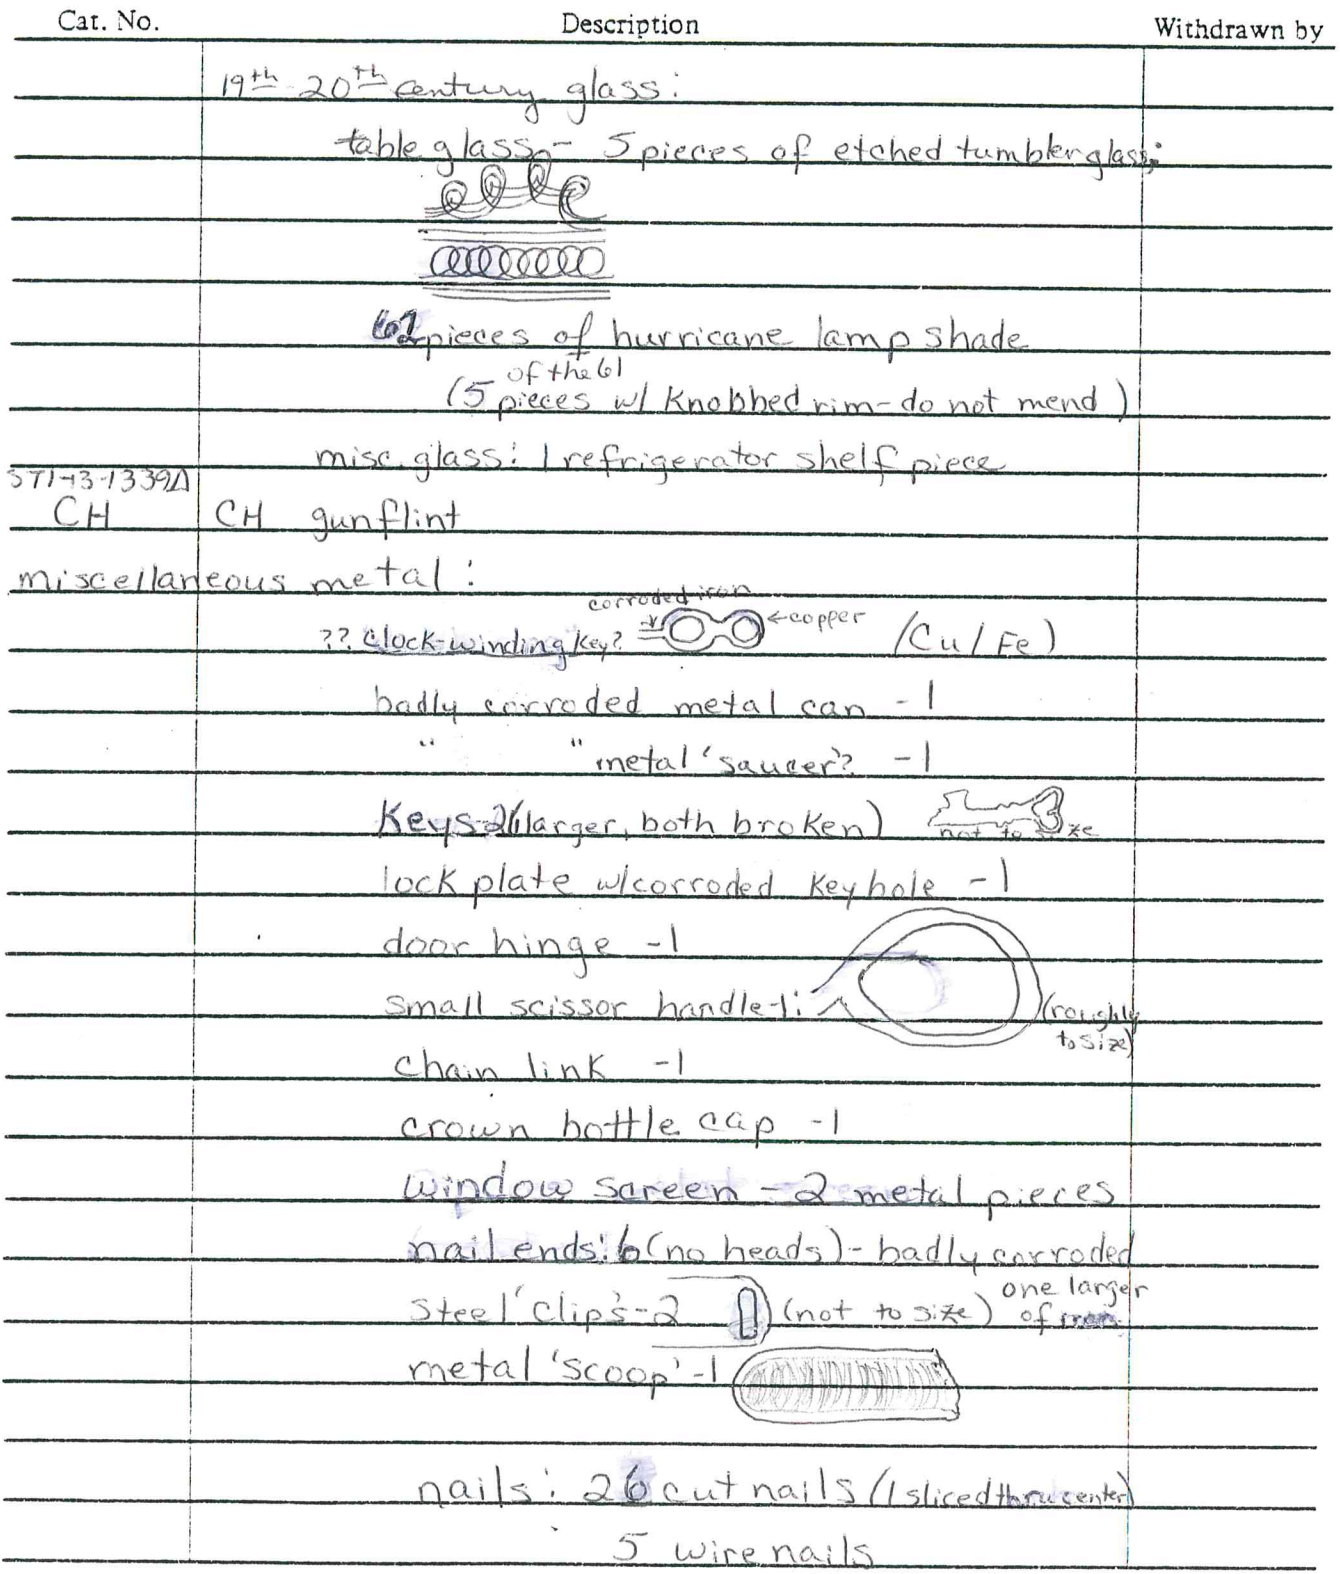 Cat. No. Description Withdrawn by
19th-20th century glass:
table glass - 5 pieces of etched tumbler glass:
61 pieces of hurricane lamp shade
of the 61
(5 pieces w/ knobbed rim - do not mend)
misc. glass: 1 refrigerator shelf piece
ST1-13-1339A
CH CH gunflint
miscellaneous metal:
corroded iron
?? clock-winding key? ←copper (Cu/Fe)
badly corroded metal can - 1
" " metal 'saucer'? - 1
Keys-2 (larger, both broken) not to size
lock plate w/corroded keyhole - 1
door hinge - 1
small scissor handle-1: (roughly
to size)
chain link - 1
crown bottle cap - 1
window screen - 2 metal pieces
nail ends: 6 (no heads) - badly corroded
one larger
steel 'clips'-2 (not to size) of iron
metal 'scoop' - 1
nails: 26 cut nails (1 sliced thru center)
5 wire nails